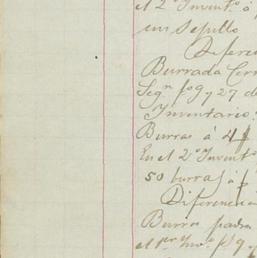 el 2º Invent.º á
un sepillo
Diferen
Burrada Cerr
Segn fº 9 y 27 de
Inventario
Burras á 4
En el 2º Invent.º
50 burras á
Diferencia
Burros padre
el 1er Inv.º fº 9 y